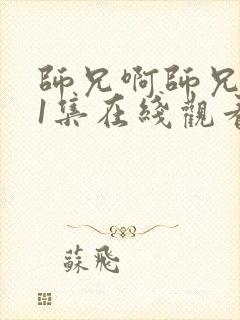 師兄啊師兄
1集在綫觀看
蘇飛